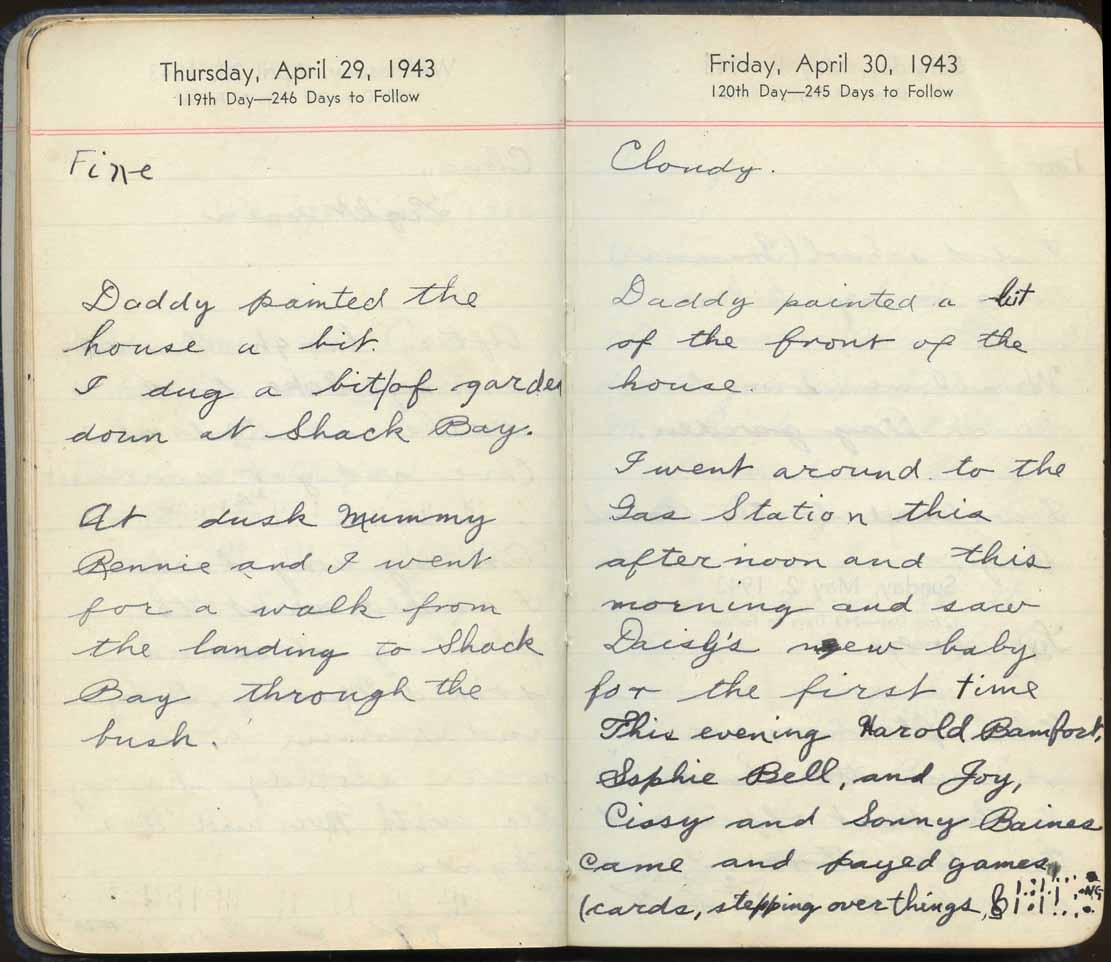 Thursday, April 29, 1943
119th Day—246 Days to Follow
Fine
Daddy painted the
house a bit.
I dug a bit/of garden
down at Shack Bay.
At dusk Mummy
Rennie and I went
for a walk from
the landing to Shack
Bay through the
bush.
Friday, April 30, 1943
120th Day—245 Days to Follow
Cloudy.
Daddy painted a bit
of the front of the
house.
I went around to the
Gas Station this
afternoon and this
morning and saw
Daisy's new baby
for the first time
This evening Harold Bamfort,
Sophie Bell, and Joy,
Cissy and Sonny Baines
came and payed games
(cards, stepping over things, &